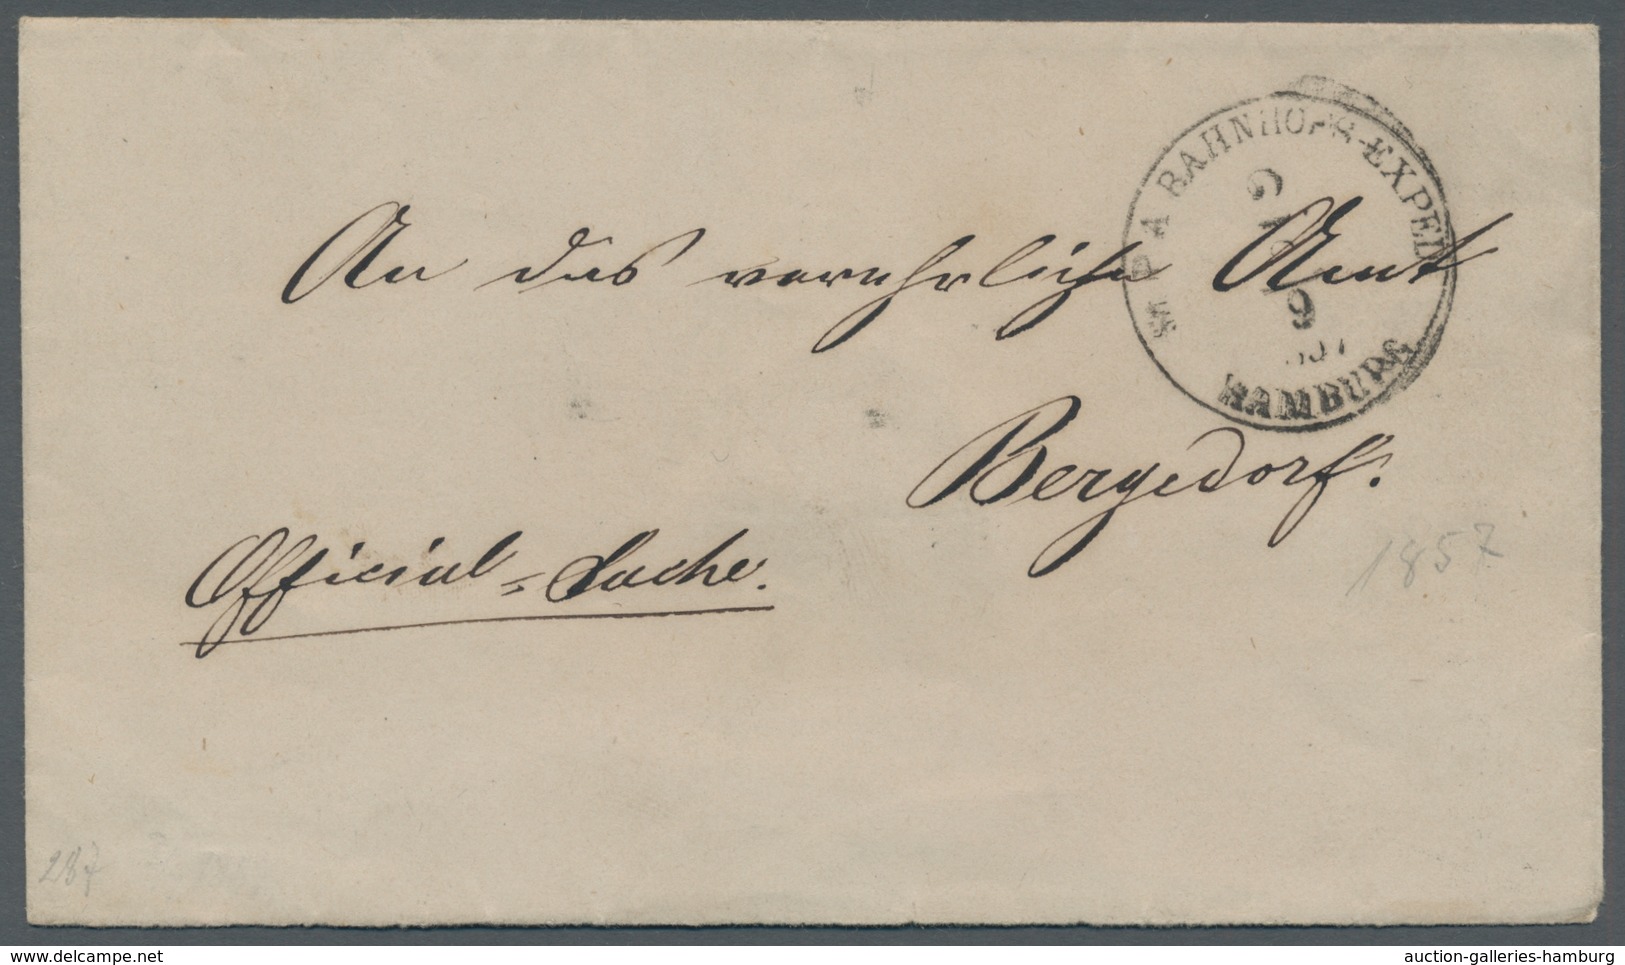 St P A BAHNHOFS-EXPED
9
HAMBURG
An das verehrliche Amt
Bergedorf.
Official=Sache.
1857
287
delcampe.net
auction-galleries-hamburg